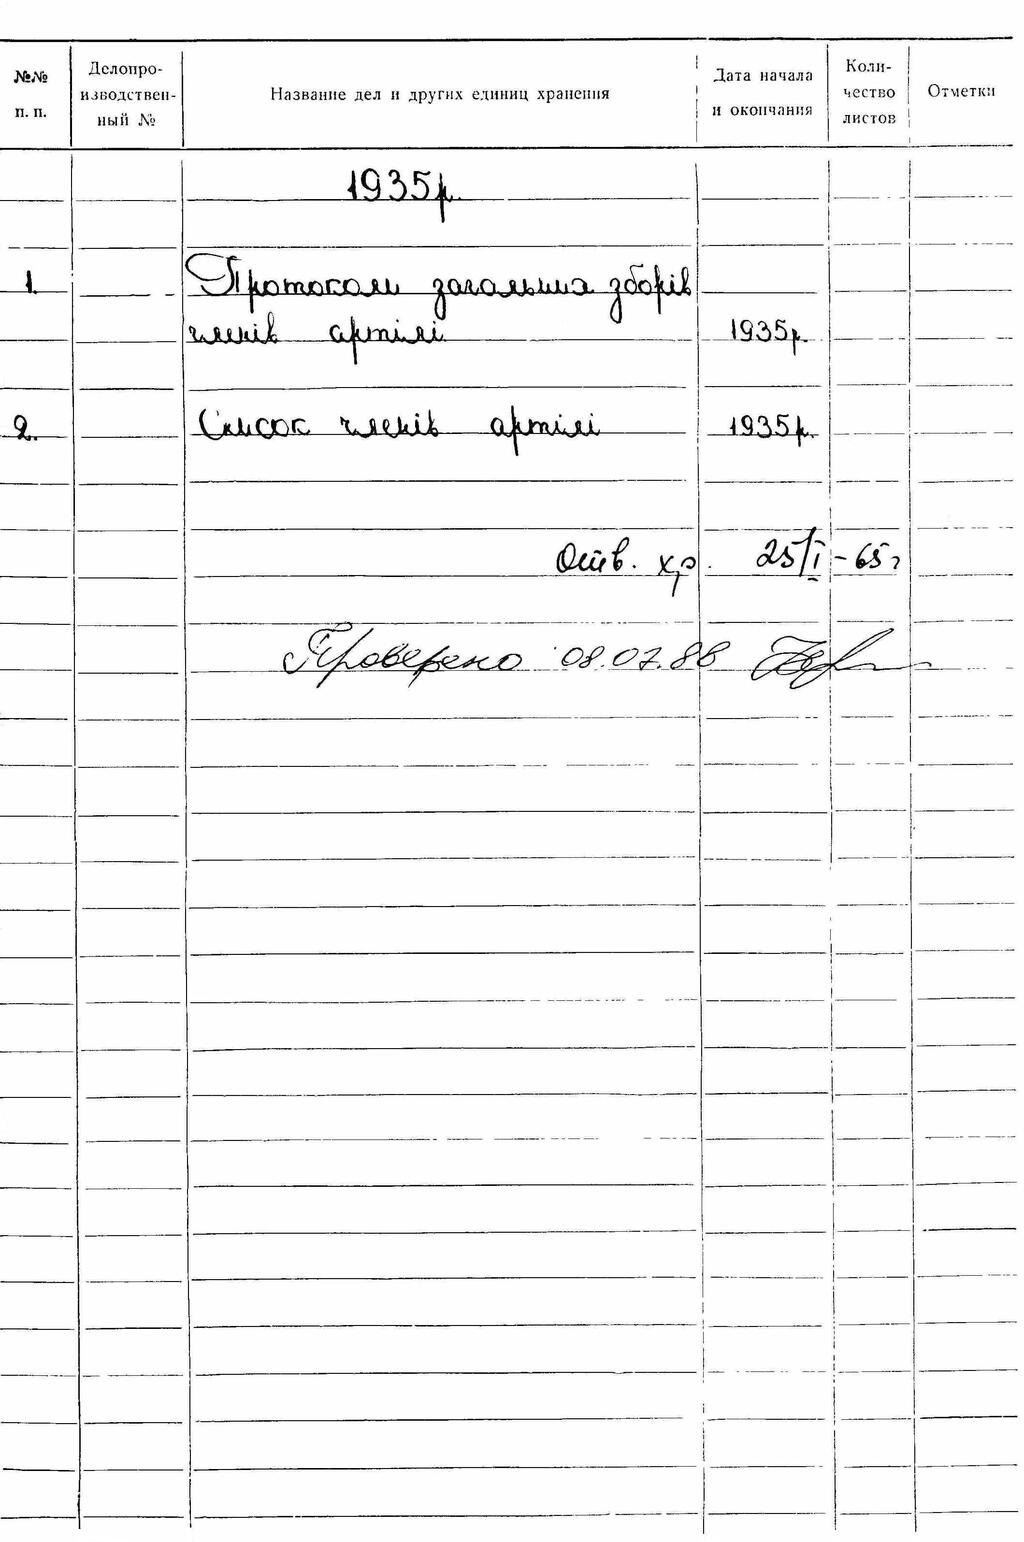 №№ п. п. Делопроизводственный № Название дел и других единиц хранения Дата начала и окончания Количество листов Отметки
1935р.
1. Протоколи загальних зборів
членів артілі 1935р.
2. Список членів артілі 1935р.
хр. 25/I-65г
Проверено 08.07.88